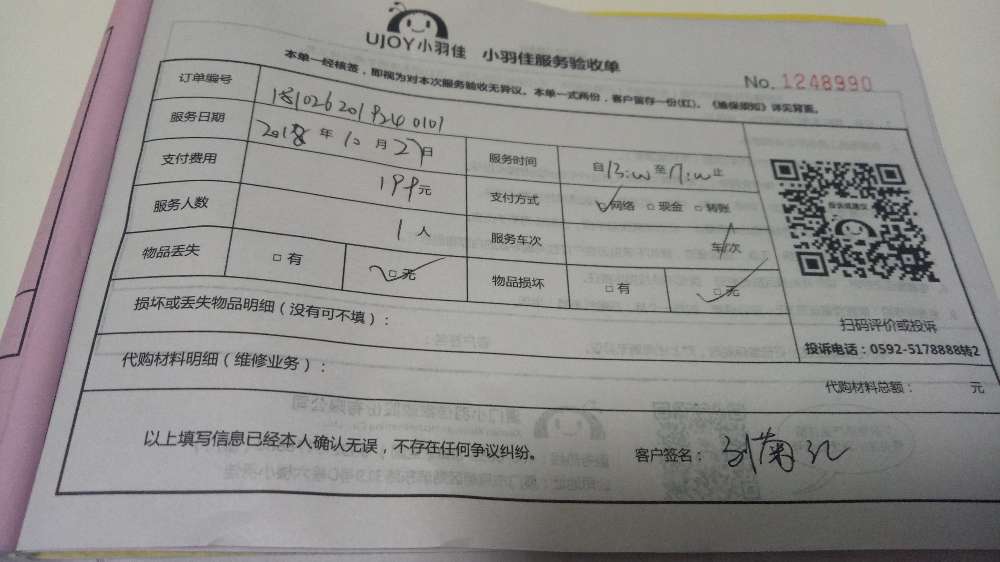 UJOY小羽佳 小羽佳服务验收单
本单一经核签，即视为对本次服务验收无异议。本单一式两份，客户留存一份(红)。《维保须知》详见背面。
No. 1248990
订单编号 1810262019240101
服务日期 2018年10月27日 服务时间 自13:00至17:00止
支付费用 199元 支付方式 网络 现金 转账
服务人数 1人 服务车次 车/次
物品丢失 有 无 物品损坏 有 无
损坏或丢失物品明细（没有可不填）：
扫码评价或投诉
投诉电话：0592-5178888转2
代购材料明细（维修业务）：
代购材料总额： 元
以上填写信息已经本人确认无误，不存在任何争议纠纷。
客户签名：